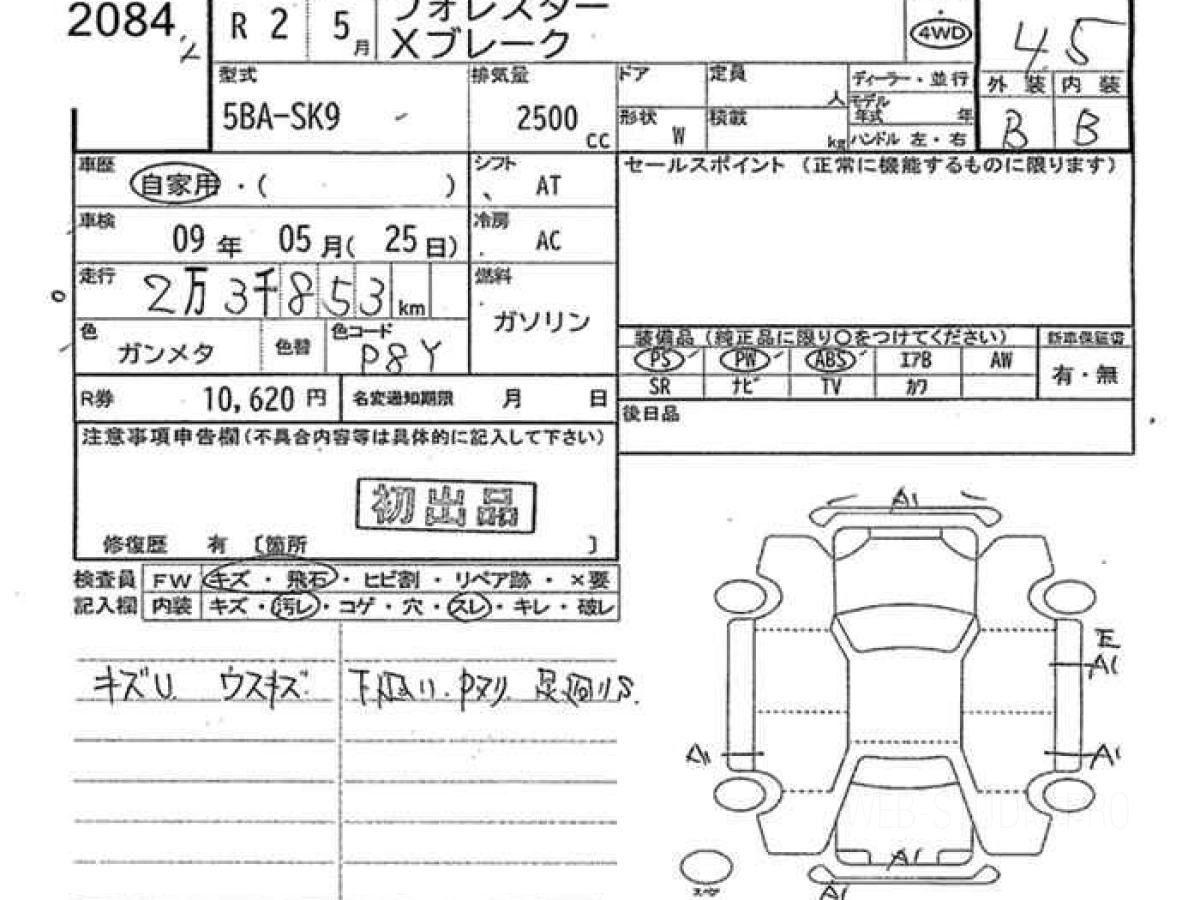 2084
R 2 5月
フォレスター
Xブレーク
4WD
4.5
型式
5BA-SK9
排気量
2500 cc
ドア
定員
人
形状 W
積載
kg
ディーラー・並行
モデル年式 年
ハンドル 左・右
外装 内装
B B
車歴
自家用・( )
シフト
AT
セールスポイント (正常に機能するものに限ります)
車検
09年 05月( 25日)
冷房
AC
走行
2万3千853km
燃料
ガソリン
色
ガンメタ
色替
色コード
P8Y
装備品 (純正品に限り○をつけてください)
新車保証書
PS PW ABS エアB AW
SR ナビ TV カワ
有・無
R券 10,620円
名変通知期限 月 日
後日品
注意事項申告欄(不具合内容等は具体的に記入して下さい)
初出品
修復歴 有 〔箇所 〕
検査員
記入欄
FW キズ・飛石・ヒビ割・リペア跡・×要
内装 キズ・汚レ・コゲ・穴・スレ・キレ・破レ
キズU. ウスキズ
足回りS.
A1
E
A1
A1
A1
A1
スペア
A1
WEB-STUDIO.PRO